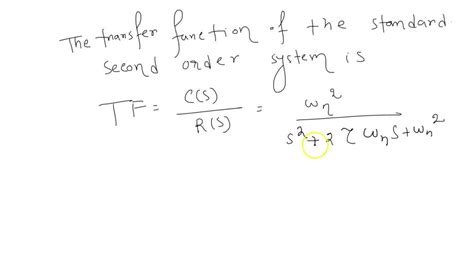 The transfer function of the standard
second order system is
TF = C(S) / R(S) = ωn² / s² + 2 τ ωn s + ωn²